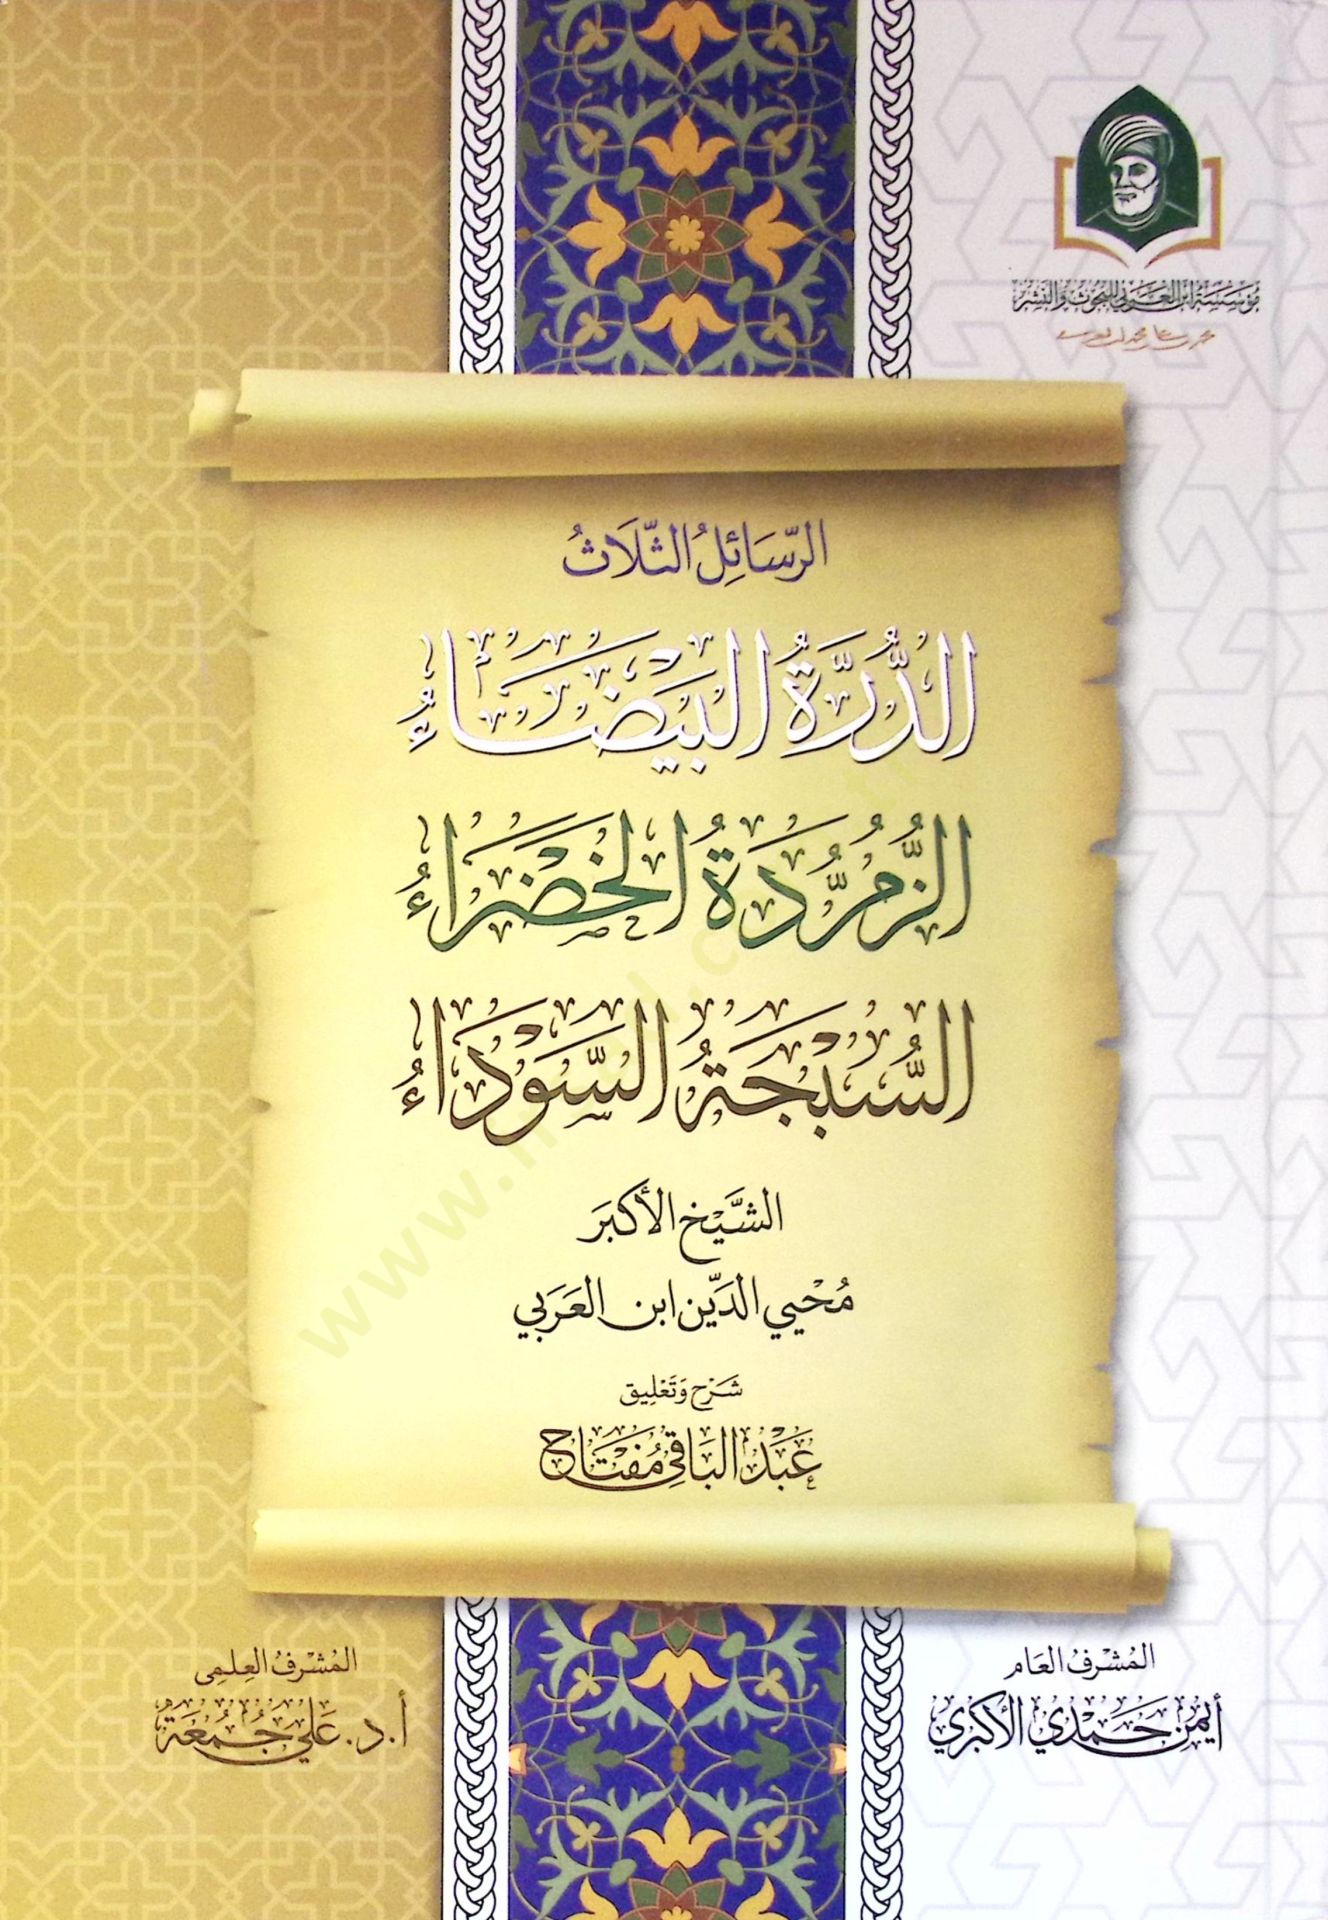 مؤسسة ابن العربي للبحوث والنشر
الرَّسَائِلُ الثَّلَاثُ
الدُّرَّةُ البَيْضَاءُ
الزُّمُرُّدَةُ الخَضْرَاءُ
السَّبْجَةُ السَّوْدَاءُ
الشَّيْخ الأَكبَر
مُحْيي الدِّين ابن العَرَبي
شَرْح وَتَعْلِيق
عَبْدُ البَاقِي مُفْتَاح
المُشْرِفُ العَام
أيمَن حَمْدِي الأَكبَرِي
المُشْرِفُ العِلمِي
أ.د. عَلي جُمُعَة